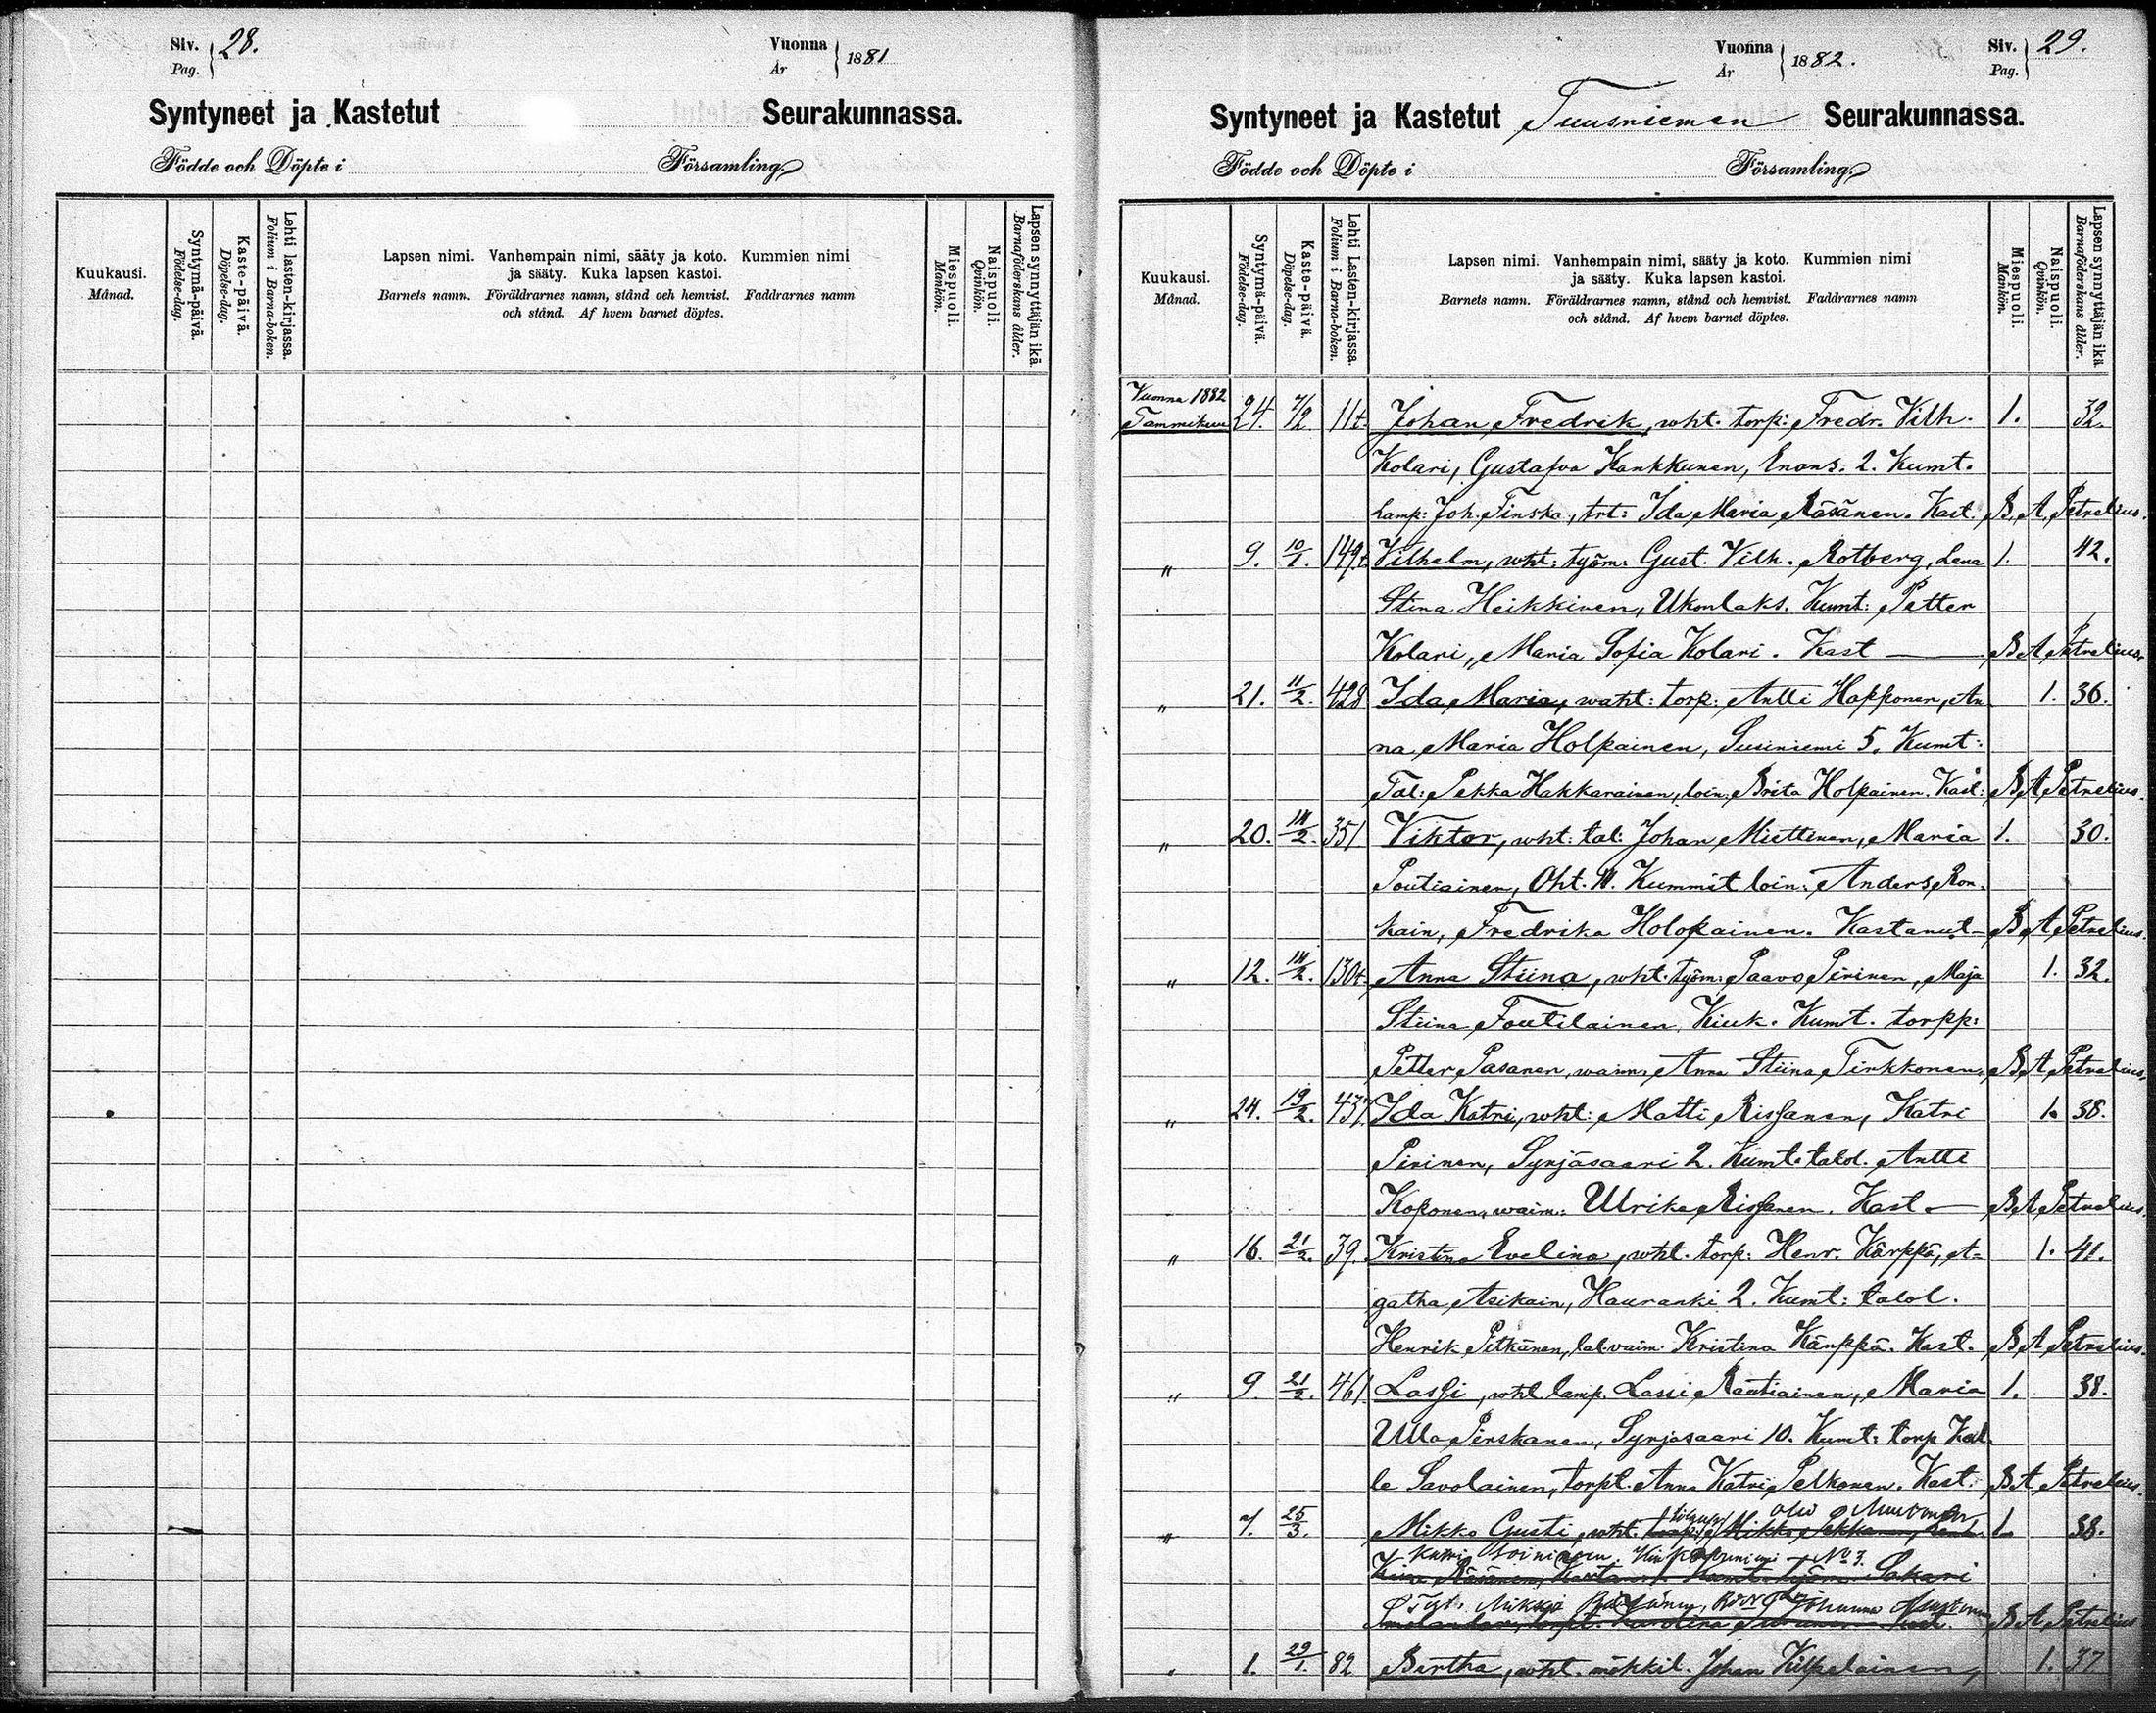 Siv. Pag. 28.
Vuonna År 1881
Syntyneet ja Kastetut Seurakunnassa.
Födde och Döpte i Församling
Kuukausi. Månad.
Syntymä-päivä. Födelse-dag.
Kaste-päivä. Döpelse-dag.
Lehti lasten-kirjassa. Folium i Barna-boken.
Lapsen nimi. Vanhempain nimi, sääty ja koto. Kummien nimi
ja sääty. Kuka lapsen kastoi.
Barnets namn. Föräldrarnes namn, stånd och hemvist. Faddrarnes namn
och stånd. Af hvem barnet döptes.
Miespuoli. Mankön.
Naispuoli. Qvinkön.
Lapsen synnyttäjän ikä. Barnaföderskans ålder.
Vuonna År 1882.
Siv. Pag. 29.
Syntyneet ja Kastetut Tuusniemen Seurakunnassa.
Födde och Döpte i Församling
Kuukausi. Månad.
Syntymä-päivä. Födelse-dag.
Kaste-päivä. Döpelse-dag.
Lehti Lasten-kirjassa. Folium i Barna-boken.
Lapsen nimi. Vanhempain nimi, sääty ja koto. Kummien nimi
ja sääty. Kuka lapsen kastoi.
Barnets namn. Föräldrarnes namn, stånd och hemvist. Faddrarnes namn
och stånd. Af hvem barnet döptes.
Miespuoli. Mankön.
Naispuoli. Qvinkön.
Lapsen synnyttäjän ikä. Barnaföderskans ålder.
Vuonna 1882
Tammikuu 24. 7/2 11t. Johan Fredrik, wht. torp: Fredr. Vilh. 1. 32.
Kolari, Gustafva Kankkunen, Enons. 2. Kumt.
Lamp: Joh. Tinska, trt: Ida Maria Räsänen. Kast. B. A. Petrelius.
" 9. 10/1. 149t Vilhelm, wht: työm: Gust. Vilh. Rotberg, Lena 1. 42.
Stina Heikkinen, Ukonlaks. Kumt: Petter
Kolari, Maria Sofia Kolari. Kast — B A Petrelius.
" 21. 11/2. 428 Ida Maria, waht: torp: Antti Happonen, An 1. 36.
na Maria Holpainen, Susiniemi 5. Kumt:
Tal: Pekka Hakkarainen, loin: Brita Holpainen. Kast: B A Petrelius.
" 20. 14/2. 351 Viktor, wht: tal: Johan Miettinen, Maria 1. 30.
Poutiainen, Oht. 11. Kummit loin: Anders Ron-
kain, Fredrika Holopainen. Kastanut — B A Petrelius.
" 12. 14/2. 130t. Anna Stiina, wht. työm: Paavo Pirinen, Maja 1. 32.
Stiina Toutilainen, Kiuk. Kumt. torpp:
Petter Pasanen, waim: Anna Stiina Tirkkonen. B A Petrelius.
" 24. 19/2. 437. Ida Katri, wht: Matti Rissanen, Katri 1. 38.
Pirinen, Syrjäsaari 2. Kumt: talol. Antti
Koponen, waim: Ulrika Rissanen. Kast — B A Petrelius.
" 16. 21/2. 39. Kristina Evelina, wht. torp: Henr. Kärppä, A-
gatha Asikain, Hauranki 2. Kumt: talol. 1. 41.
Henrik Pitkänen, tal.vaim: Kristina Kärppä. Kast. B A Petrelius.
" 9. 21/2. 461. Lassi, wht lamp. Lassi Rautiainen, Maria 1. 38.
Ulla Pirskanen, Syrjäsaari 10. Kumt: torp Kal-
le Savolainen, torpt. Anna Katri Pelkonen. Kast: B A Petrelius.
" 7. 25/3. Mikko Gusti, wht. Mikko Pekkanen 1. 38.
Räsänen, Kumt: työm: Sakari
Johanna
B A Petrelius
" 1. 29/1. 82 Bertha, wht. mökkil. Johan Kilpeläinen, 1. 37